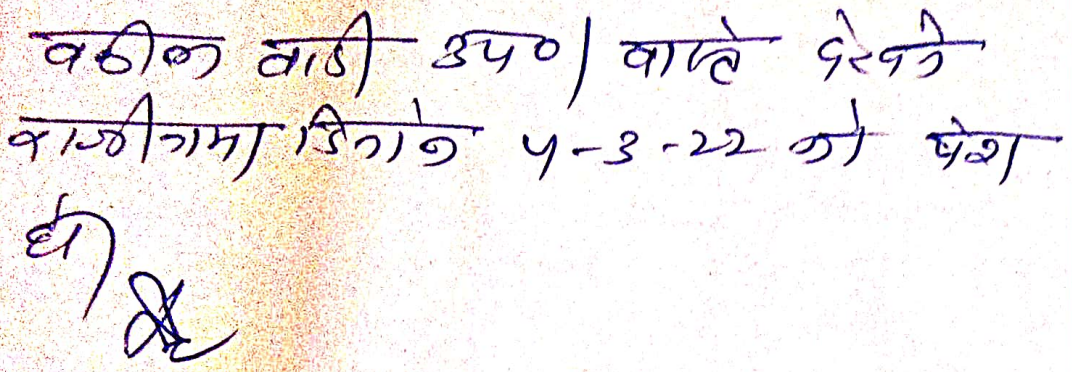 वकील वादी उप० । वास्ते देखने
राजीनामा दिनांक 5-3-22 को पेश
हो।